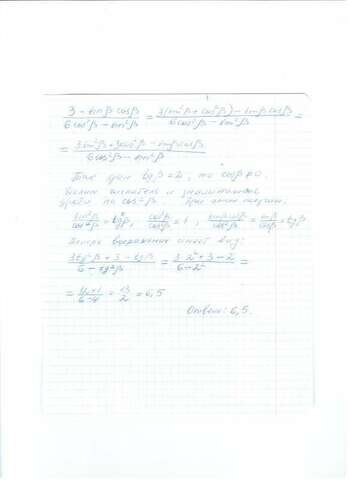 (3 - sinβ cosβ)/(6cos²β - sin²β) = (3(sin²β + cos²β) - sinβ cosβ)/(6cos²β - sin²β) =
= (3sin²β + 3cos²β - sinβ cosβ)/(6cos²β - sin²β)
Так как tgβ = 2, то cosβ ≠ 0.
Делим числитель и знаменатель
дроби на cos²β. При этом получим,
sin²β/cos²β = tg²β, cos²β/cos²β = 1, sinβ cosβ/cos²β = sinβ/cosβ = tgβ
выражение имеет вид:
(3tg²β + 3 - tgβ)/(6 - tg²β) = (3·2² + 3 - 2)/(6 - 2²) =
= (12+1)/(6-4) = 13/2 = 6,5
Ответ: 6,5.